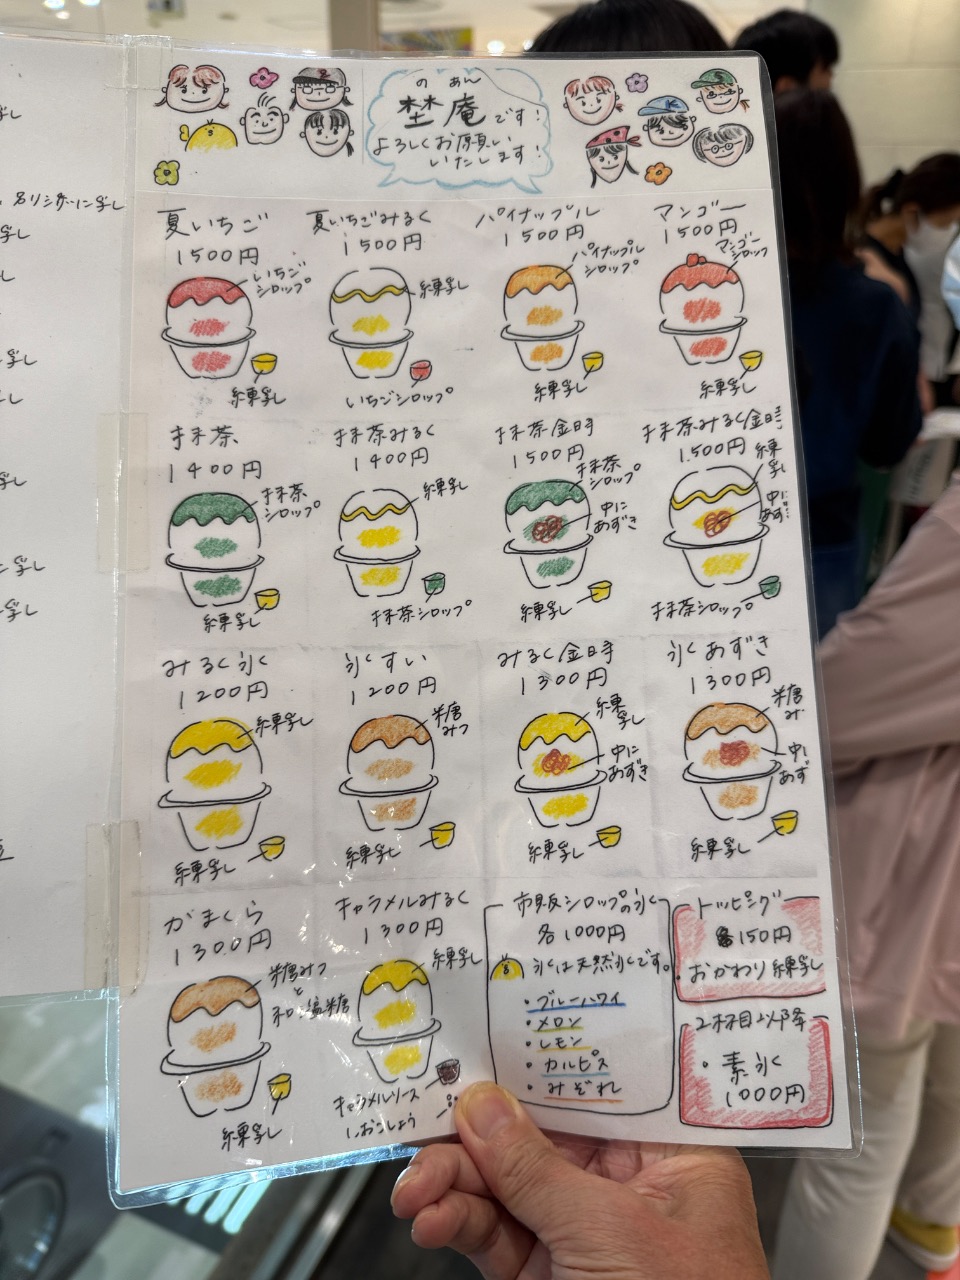 のあん
埜庵です!
よろしくお願い
いたします!
夏いちご
1500円
いちご
シロップ
練乳
夏いちごみるく
1500円
練乳
いちごシロップ
パイナップル
1500円
パイナップル
シロップ
練乳
マンゴー
1500円
マンゴー
シロップ
練乳
抹茶
1400円
抹茶
シロップ
練乳
抹茶みるく
1400円
練乳
抹茶シロップ
抹茶金時
1500円
抹茶
シロップ
中に
あずき
練乳
抹茶みるく金時
1500円
練
乳
中に
あず
抹茶シロップ
みるく氷
1200円
練乳
練乳
氷すい
1200円
糖
みつ
練乳
みるく金時
1300円
練
乳
中に
あずき
練乳
氷あずき
1300円
糖
み
中に
あず
練乳
がまくら
1300円
糖みつ
と
和三盆糖
練乳
キャラメルみるく
1300円
練乳
キャラメルソース
しおこしょう
市販シロップの氷
各1000円
氷は天然氷です。
・ブルーハワイ
・メロン
・レモン
・カルピス
・みぞれ
トッピング
150円
・おかわり練乳
2杯目以降
・素氷
1000円